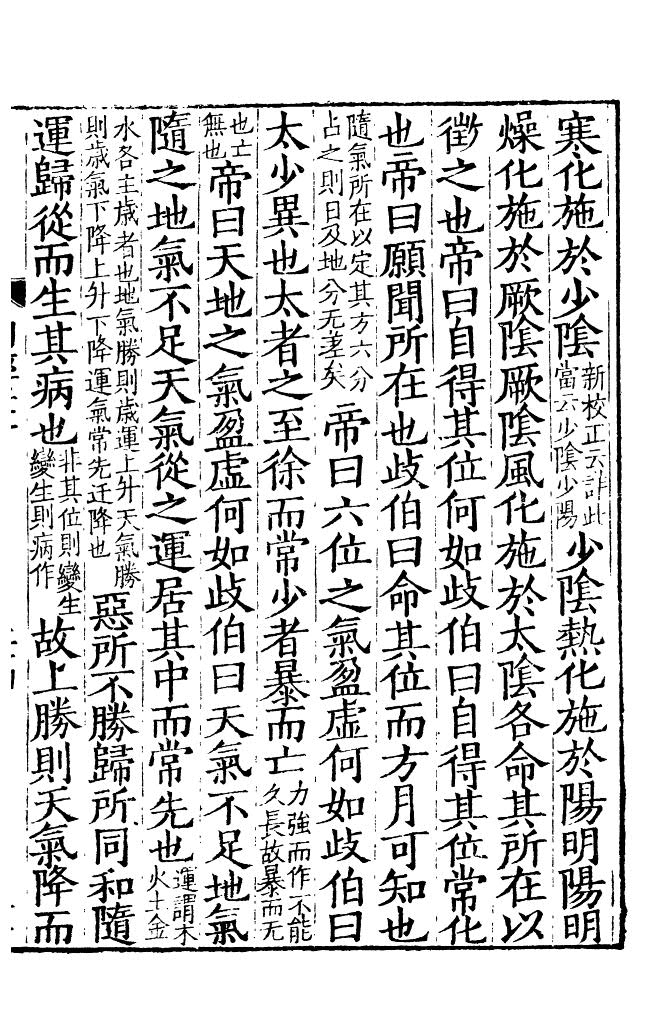 寒化施於少陰新校正云詳此當云少陰少陽少陰熱化施於陽明陽明
燥化施於厥陰厥陰風化施於太陰各命其所在以
徵之也帝曰自得其位何如歧伯曰自得其位常化
也帝曰願聞所在也歧伯曰命其位而方月可知也
隨氣所在以定其方六分占之則日及地分无差矣帝曰六位之氣盈虛何如歧伯曰
太少異也太者之至徐而常少者暴而亡力強而作不能久長故暴而无
也亡無也帝曰天地之氣盈虛何如歧伯曰天氣不足地氣
隨之地氣不足天氣從之運居其中而常先也運謂木火土金
水各主歲者也地氣勝則歲運上升天氣勝則歲氣下降上升下降運氣常先迁降也惡所不勝歸所同和隨
運歸從而生其病也非其位則變生變生則病作故上勝則天氣降而